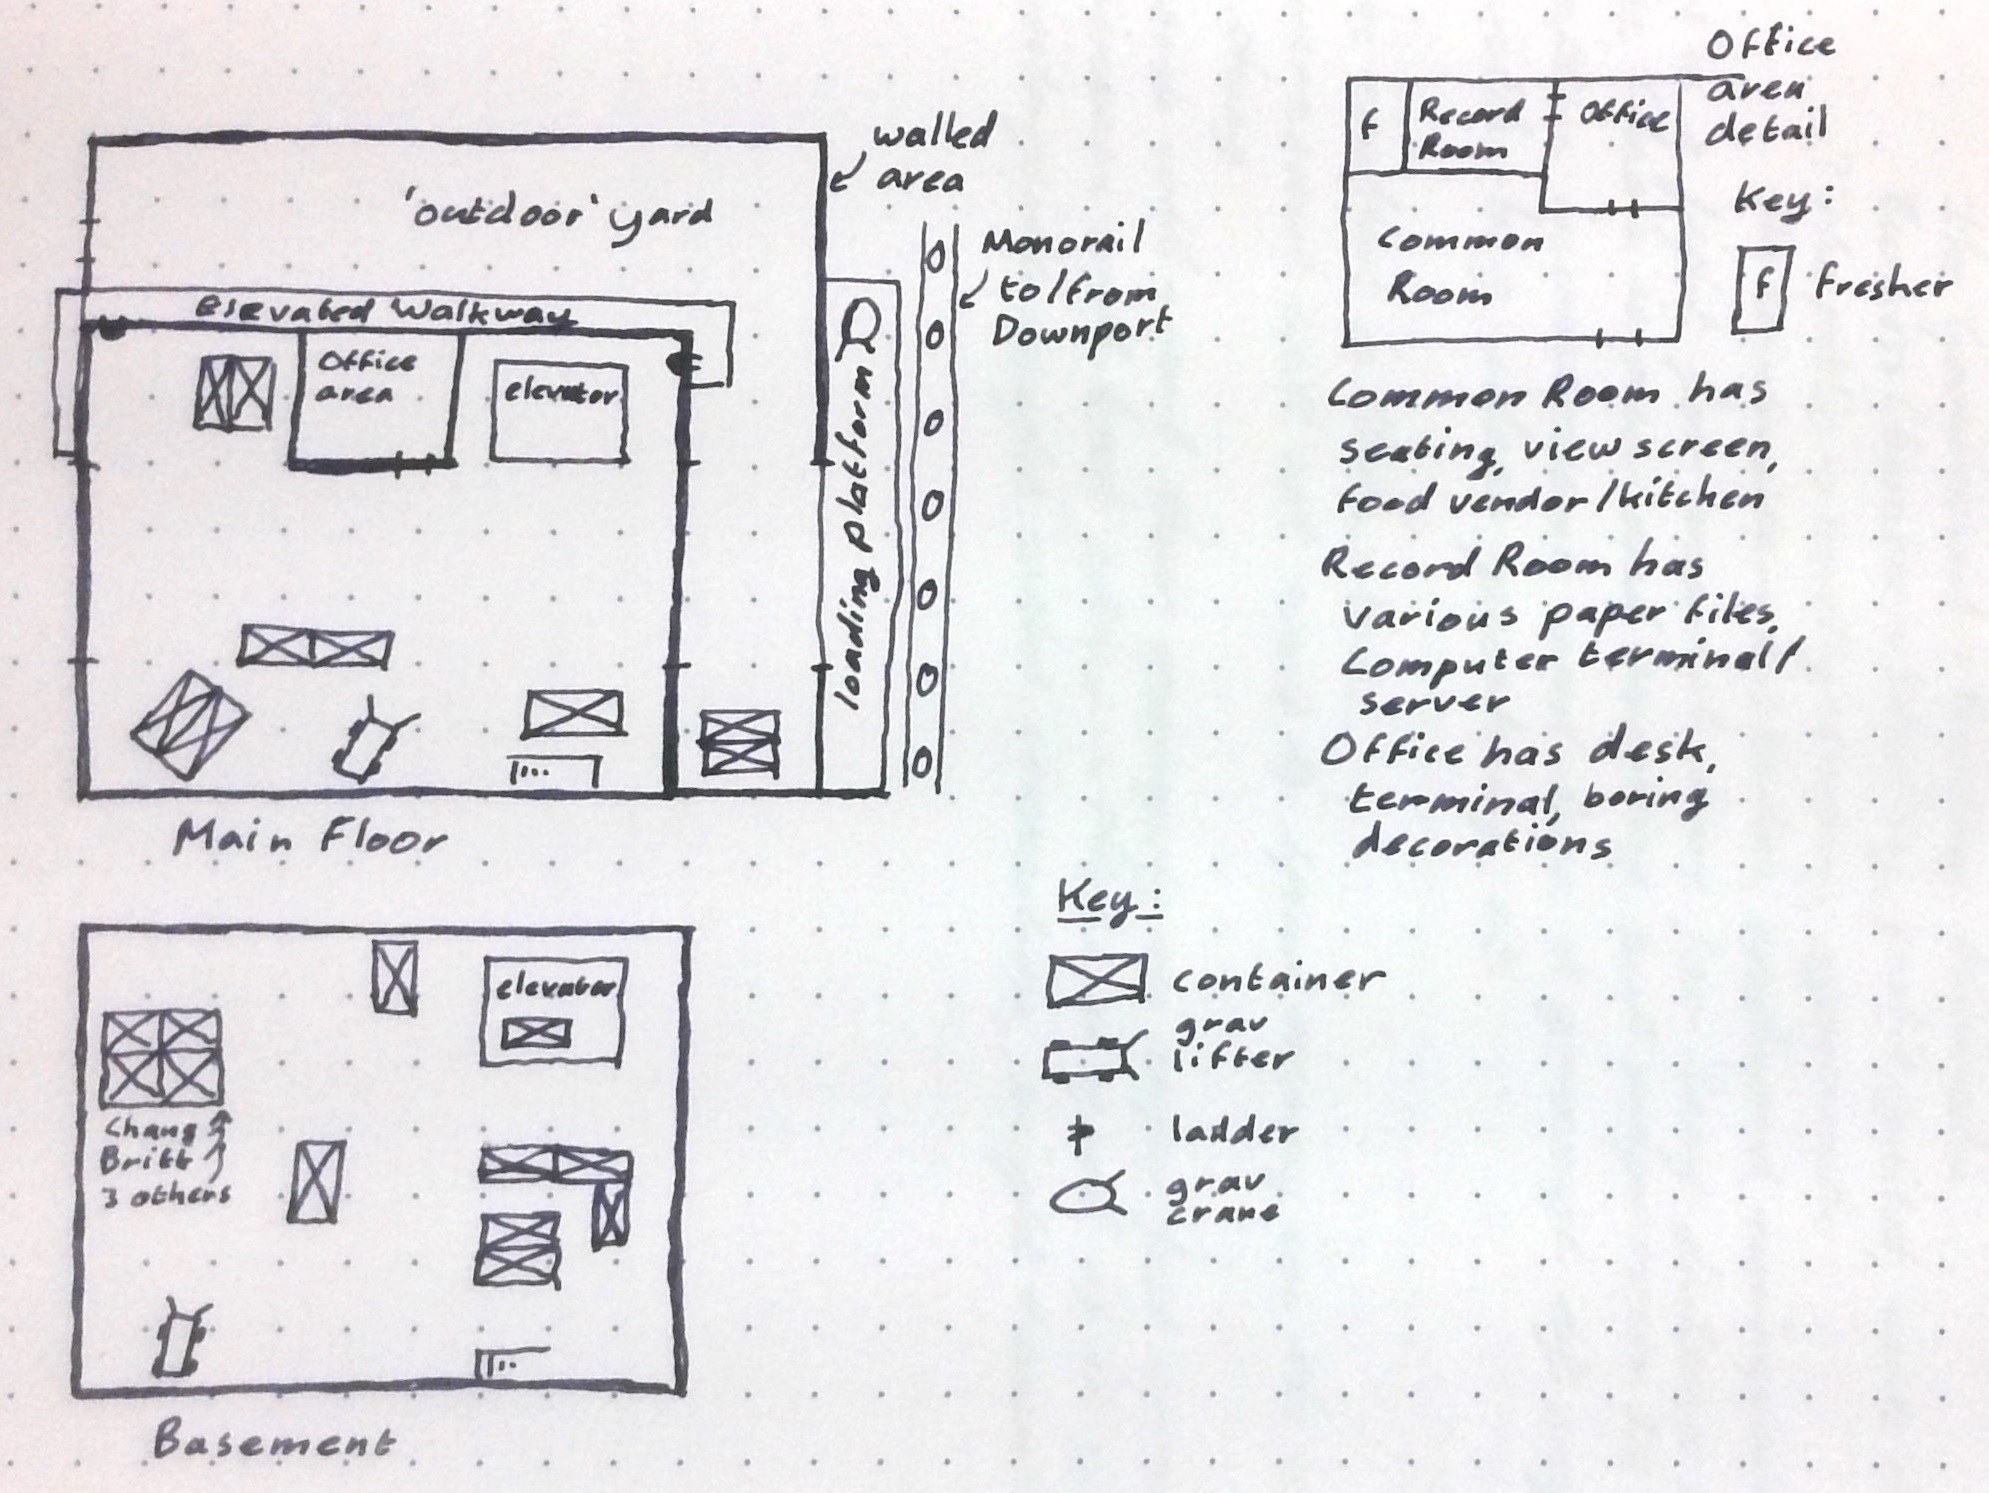 walled
area
'outdoor' yard
elevated walkway
Office
area
elevator
loading platform
Monorail
to/from
Downport
Main Floor
elevator
Chang
Britt
3 others
Basement
Office
area
detail
f
Record
Room
Office
Common
Room
Key:
f fresher
Common Room has
seating, view screen,
food vendor/kitchen
Record Room has
various paper files,
computer terminal/
server
Office has desk,
terminal, boring
decorations
Key:
container
grav
lifter
ladder
grav
crane